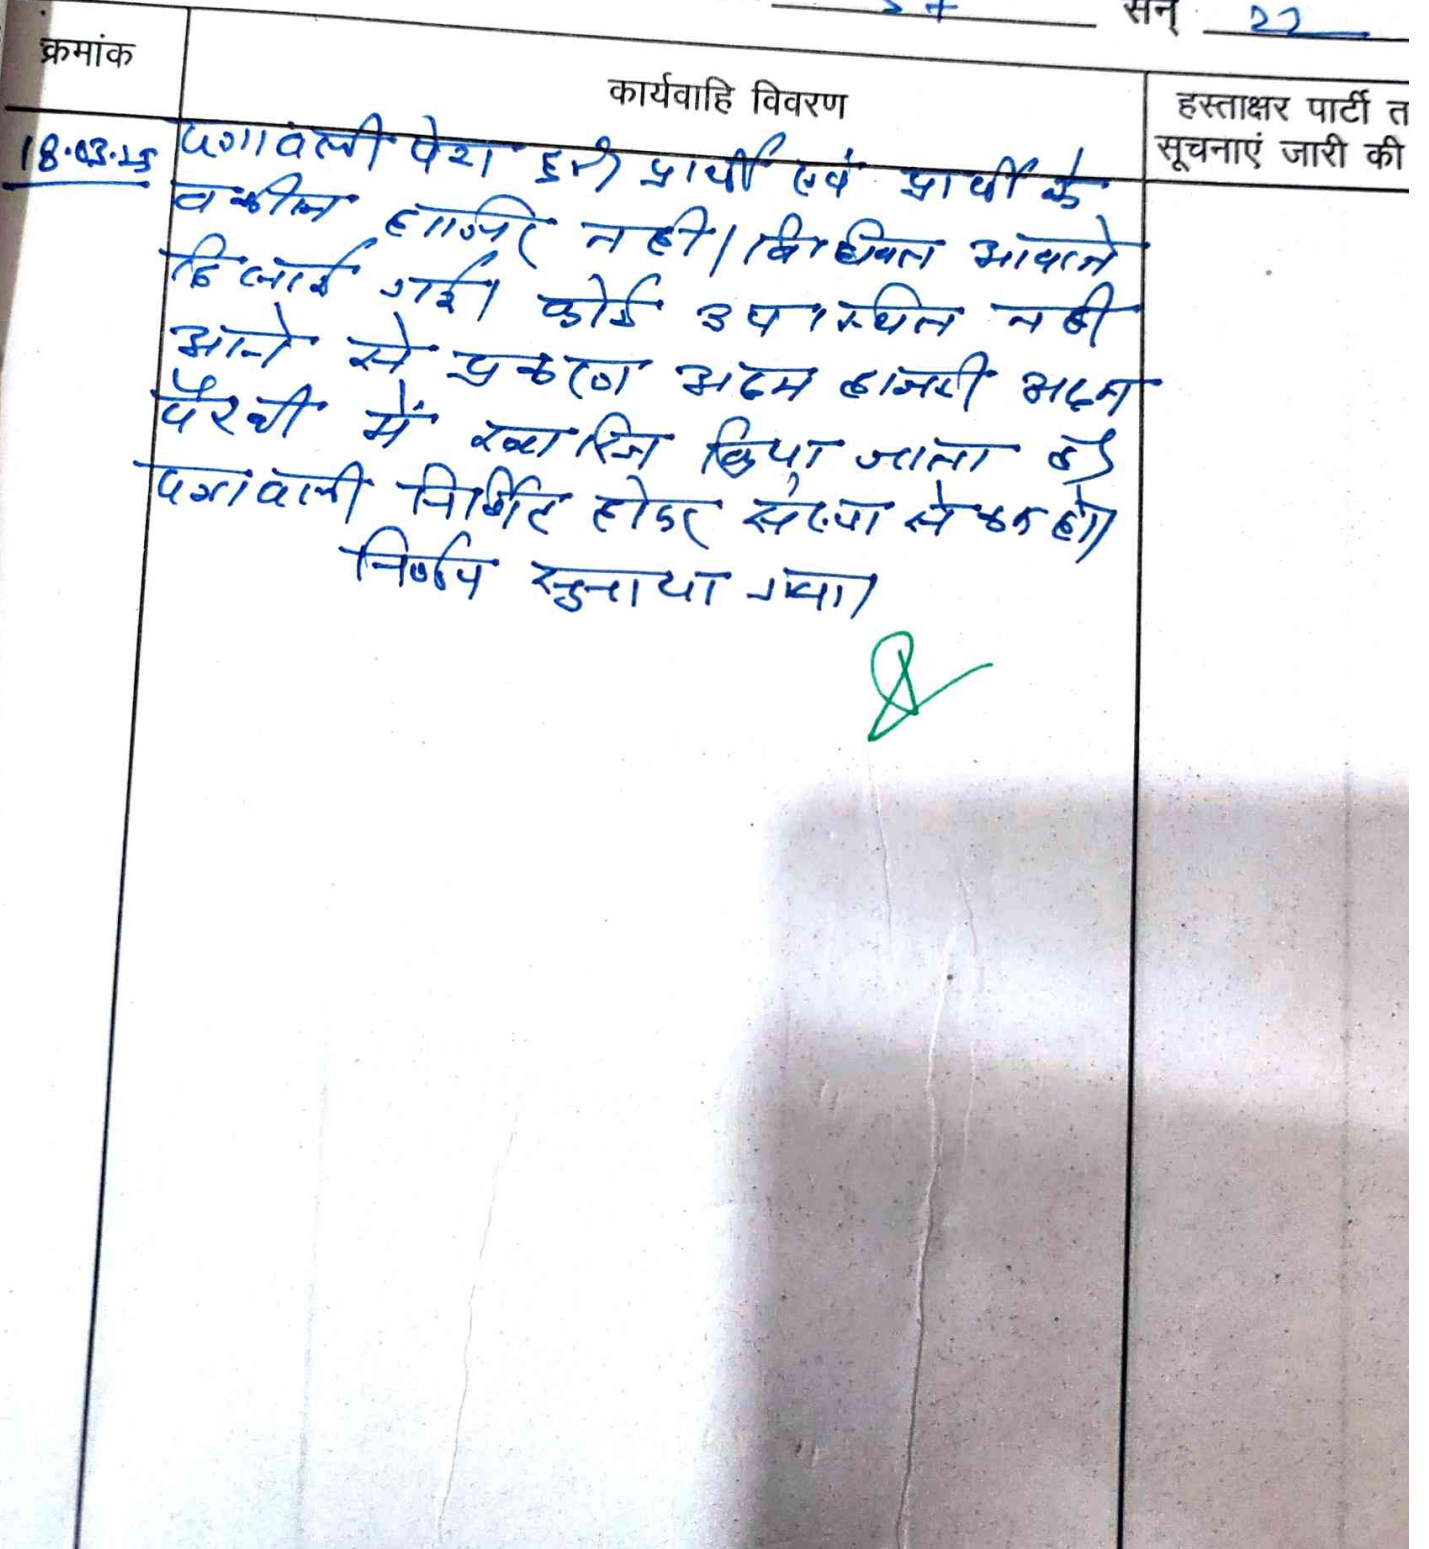 सन् 22
क्रमांक
कार्यवाहि विवरण
हस्ताक्षर पार्टी त
सूचनाएं जारी की
18.03.25
पत्रावली पेश हुई। प्रार्थी एवं प्रार्थी के
वकील हाजिर नही। विधिवत आवाजे
दिलाई गई। कोई उपस्थित नही
आने से प्रकरण अदम हाजरी अदम
पैरवी में खारिज किया जाता है।
पत्रावली निर्णित होकर संख्या से कम हो।
निर्णय सुनाया गया।